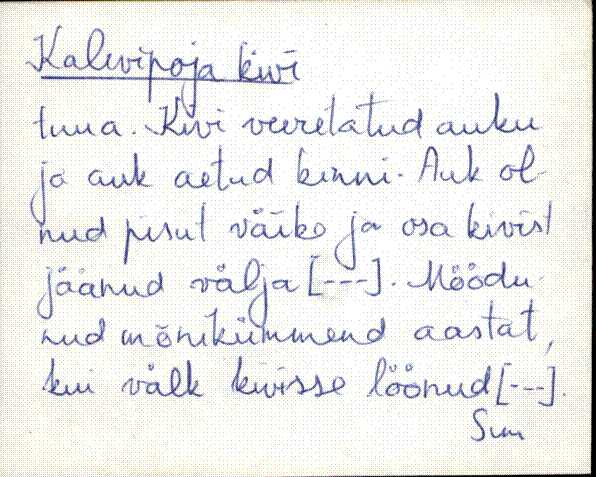 Kalevipoja kivi
tuua. Kivi veeretatud auku
ja auk aetud kinni. Auk ol-
nud pisut väike ja osa kivist
jäänud välja [---]. Möödu-
nud mõnikümmend aastat,
kui välk kivisse löönud [---].